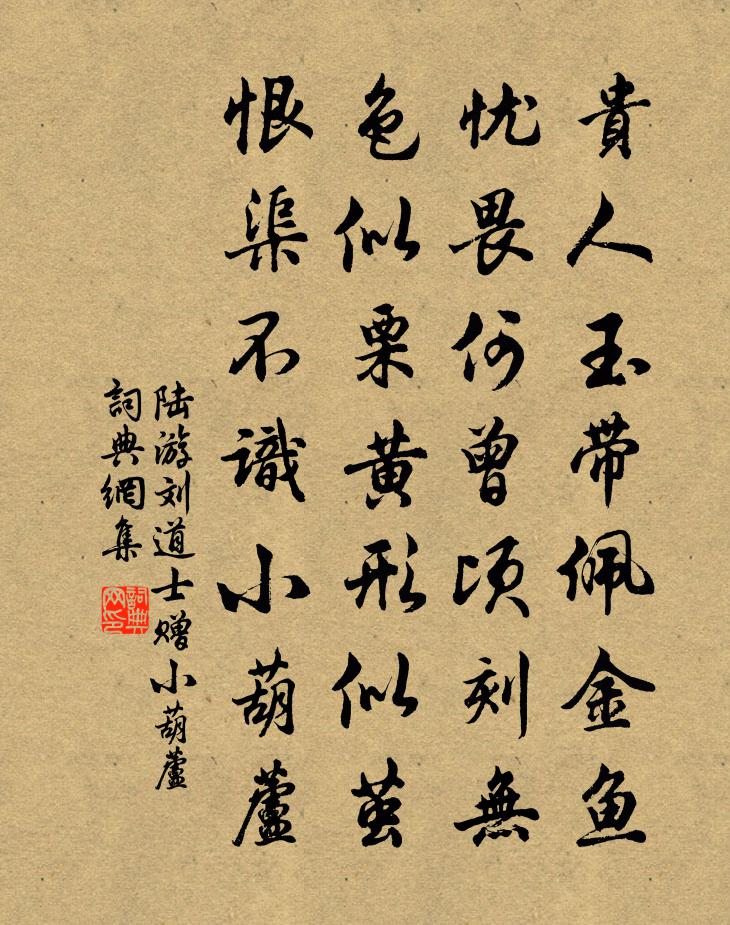 貴人玉带佩金鱼
忧畏何曾顷刻無
色似栗黄形似茧
恨渠不識小葫蘆
陆游刘道士赠小葫蘆
詞典網集
詞典网印